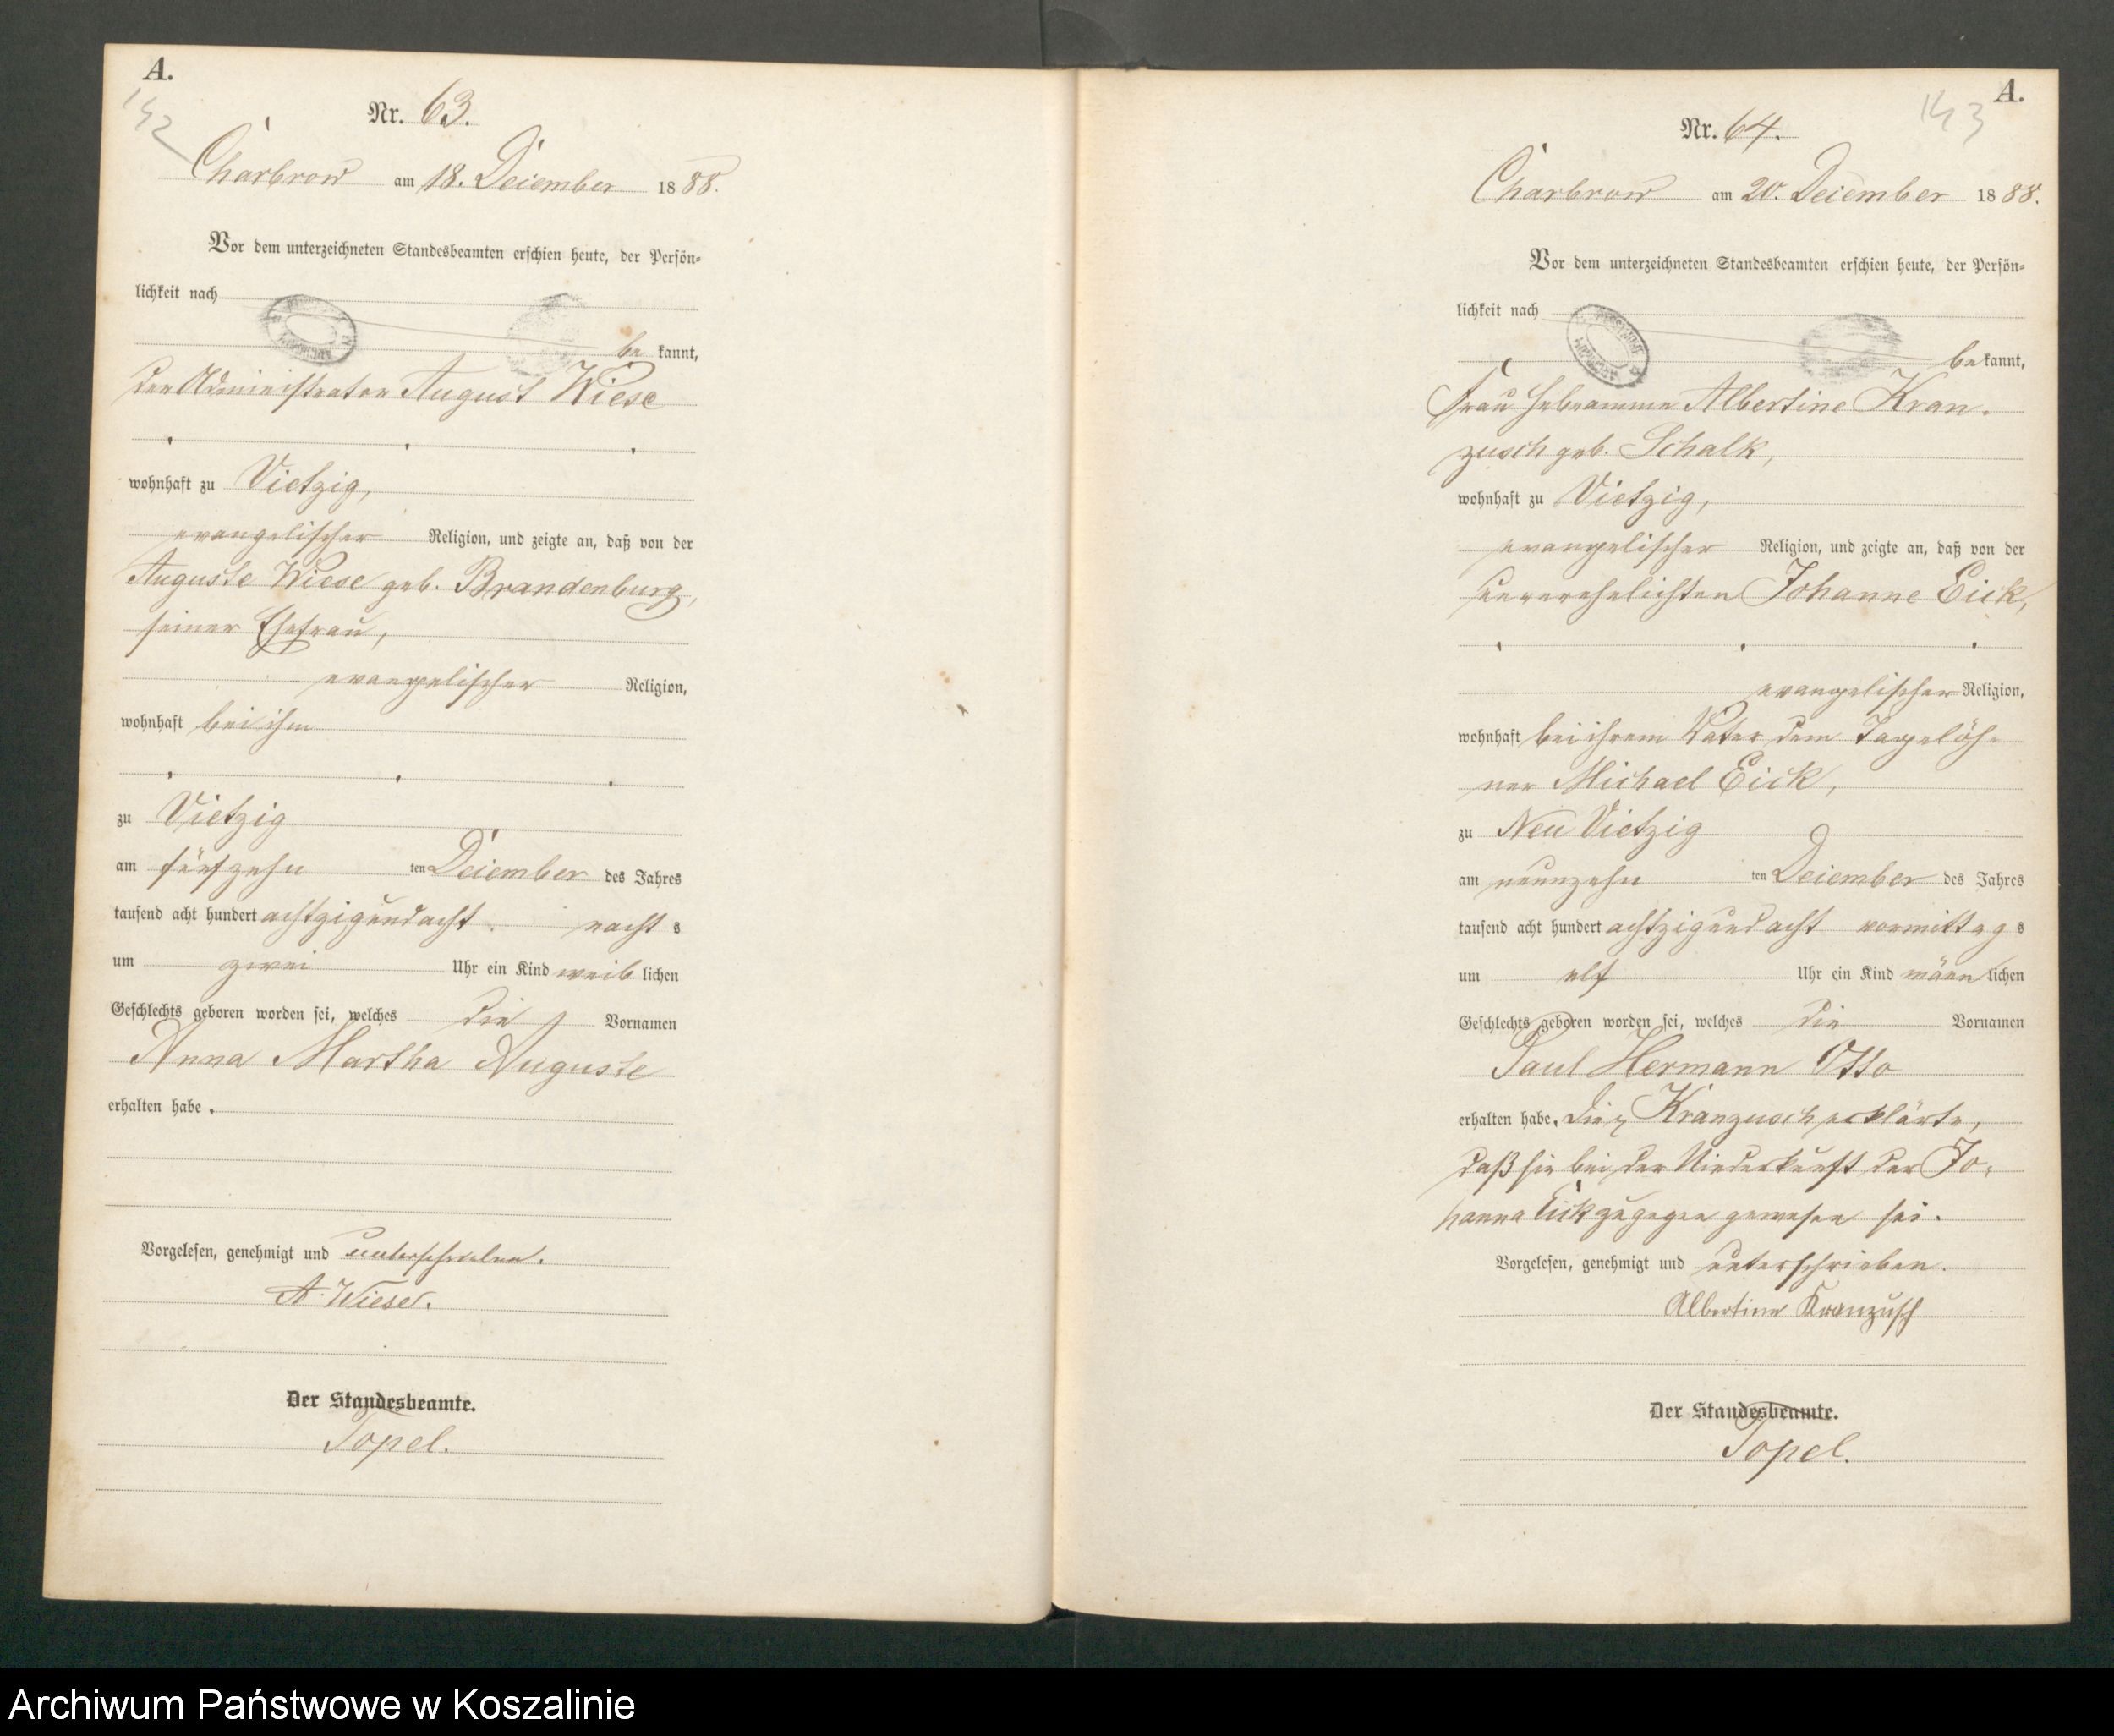 A.
142
Nr. 63.
Charbrow am 18. December 1888.
Vor dem unterzeichneten Standesbeamten erschien heute, der Persön-
lichkeit nach
be kannt,
der Administrator August Wiese
wohnhaft zu Vietzig,
evangelischer Religion, und zeigte an, daß von der
Auguste Wiese geb. Brandenburg,
seiner Ehefrau,
evangelischer Religion,
wohnhaft bei ihm
zu Vietzig
am fünfzehn ten December des Jahres
tausend acht hundert achtzigundacht nacht s
um zwei Uhr ein Kind weib lichen
Geschlechts geboren worden sei, welches die Vornamen
Anna Martha Auguste
erhalten habe.
Vorgelesen, genehmigt und unterschrieben.
A. Wiese.
Der Standesbeamte.
Topel.
A.
143
Nr. 64.
Charbrow am 20. December 1888.
Vor dem unterzeichneten Standesbeamten erschien heute, der Persön-
lichkeit nach
be kannt,
Frau Hebeamme Albertine Kran-
zusch geb. Schalk,
wohnhaft zu Vietzig,
evangelischer Religion, und zeigte an, daß von der
unverehelichten Johanne Eick,
evangelischer Religion,
wohnhaft bei ihrem Vater dem Tagelöh-
ner Michael Eick,
zu Neu Vietzig
am neunzehn ten December des Jahres
tausend acht hundert achtzigundacht vormittag s
um elf Uhr ein Kind männ lichen
Geschlechts geboren worden sei, welches die Vornamen
Paul Hermann Otto
erhalten habe. Die Kranzusch erklärte,
daß sie bei der Niederkunft der Jo-
hanna Eick zugegen gewesen sei.
Vorgelesen, genehmigt und unterschrieben.
Albertine Kranzusch
Der Standesbeamte.
Topel.
Archiwum Państwowe w Koszalinie